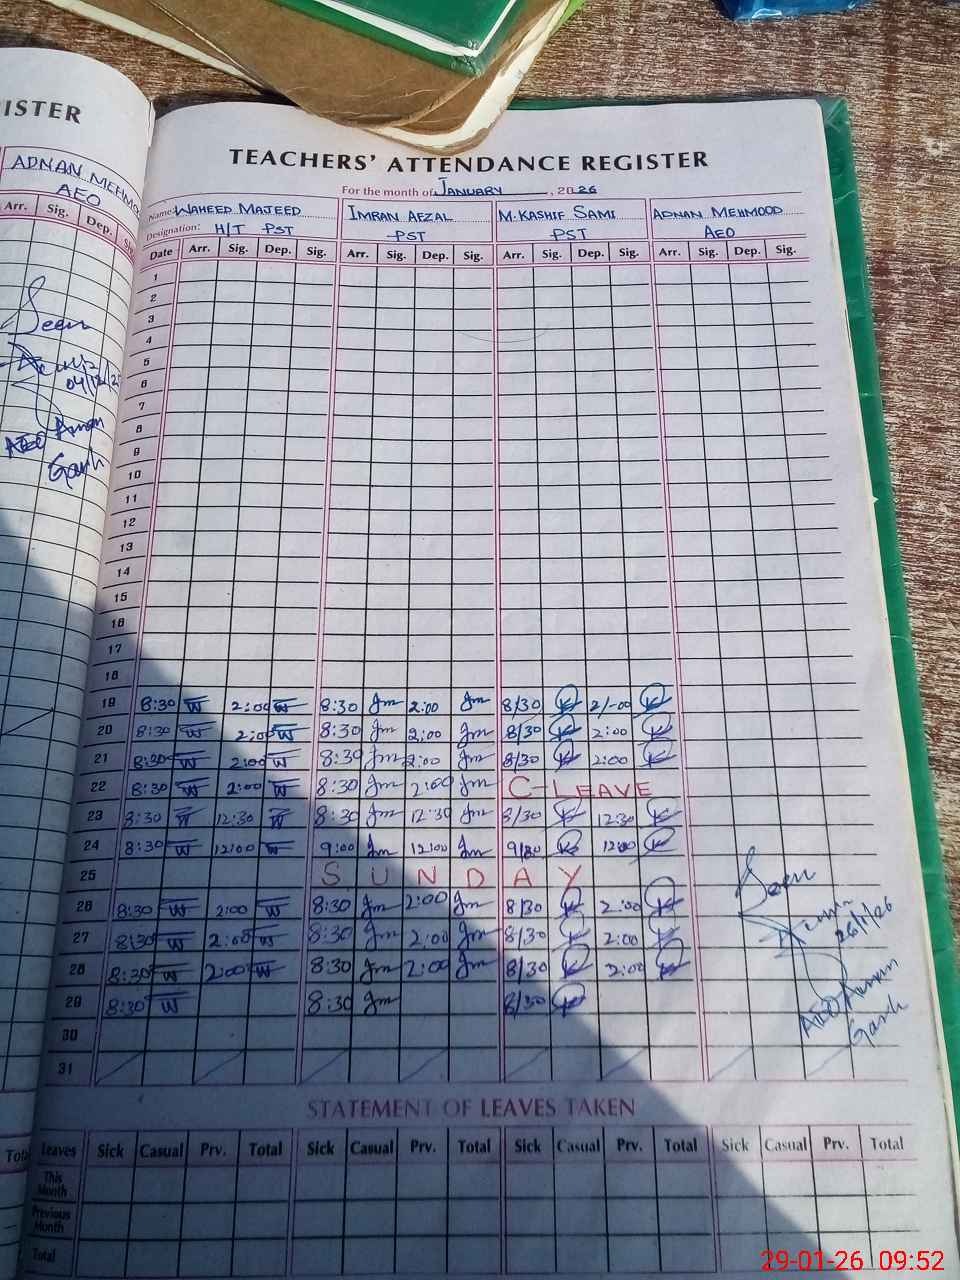 ISTER
ADNAN MEHMO
AEO
Arr. Sig. Dep.
Seen
AEO Aman
Garh
TEACHERS' ATTENDANCE REGISTER
For the month of JANUARY, 2026
Name: WAHEED MAJEED IMRAN AFZAL M. KASHIF SAMI ADNAN MEHMOOD
Designation: H/T PST PST PST AEO
Date Arr. Sig. Dep. Sig. Arr. Sig. Dep. Sig. Arr. Sig. Dep. Sig. Arr. Sig. Dep. Sig.
1
2
3
4
5
6
7
8
9
10
11
12
13
14
15
16
17
18
19 8:30 W 2:00 W 8:30 Jm 2:00 Jm 8/30 K 2/-00 K
20 8:30 W 2:00 W 8:30 Jm 2:00 Jm 8/30 K 2:00 K
21 8:30 W 2:00 W 8:30 Jm 2:00 Jm 8/30 K 2:00 K
22 8:30 W 2:00 W 8:30 Jm 2:00 Jm C-LEAVE
23 8:30 W 12:30 W 8:30 Jm 12:30 Jm 8/30 K 12:30 K
24 8:30 W 12:00 W 9:00 Jm 12:00 Jm K 12:00 K
25 SUNDAY
26 8:30 W 2:00 W 8:30 Jm 2:00 Jm 8/30 K 2:00 K
27 8:30 W 2:00 W 8:30 Jm 2:00 Jm 8/30 K 2:00 K
28 8:30 W 2:00 W 8:30 Jm 2:00 Jm 8/30 K 2:00 K
29 8:30 W 8:30 Jm 8/30 K
30
31
Seen
26/1/26
AEO Aman
Garh
STATEMENT OF LEAVES TAKEN
Leaves Sick Casual Prv. Total Sick Casual Prv. Total Sick Casual Prv. Total Sick Casual Prv. Total
This Month
Previous Month
Total
29-01-26 09:52